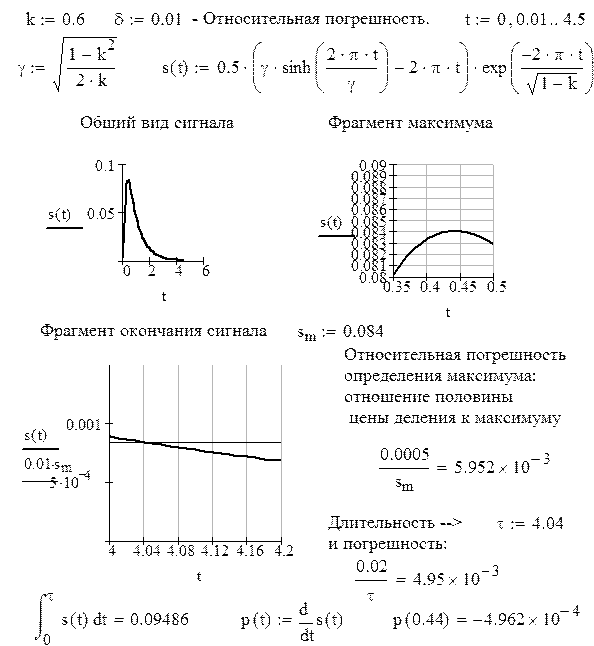 k := 0.6 δ := 0.01 - Относительная погрешность. t := 0 , 0.01 .. 4.5
γ := √((1 − k²)/(2 · k)) s(t) := 0.5 · (γ · sinh((2 · π · t)/γ) − 2 · π · t) · exp((−2 · π · t)/√(1 − k))
Общий вид сигнала Фрагмент максимума
0.1
s(t) 0.05
0 2 4 6
t
0.09
0.089
0.088
0.087
0.086
0.085
s(t) 0.084
0.083
0.082
0.081
0.08
0.35 0.4 0.45 0.5
t
Фрагмент окончания сигнала s_m := 0.084
Относительная погрешность
определения максимума:
отношение половины
цены деления к максимуму
0.001
s(t)
0.01·s_m
5·10⁻⁴
4 4.04 4.08 4.12 4.16 4.2
t
0.0005/s_m = 5.952 × 10⁻³
Длительность --> τ := 4.04
и погрешность:
0.02/τ = 4.95 × 10⁻³
∫₀^τ s(t) dt = 0.09486 p(t) := d/dt s(t) p(0.44) = −4.962 × 10⁻⁴